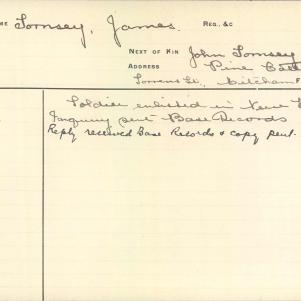 ME Tomsey, James. REG., &C
NEXT OF KIN John Tomsey
ADDRESS Pine
St., Mitcham F
Soldier enlisted in New
Inquiry sent Base Records
Reply received Base Records & copy sent.